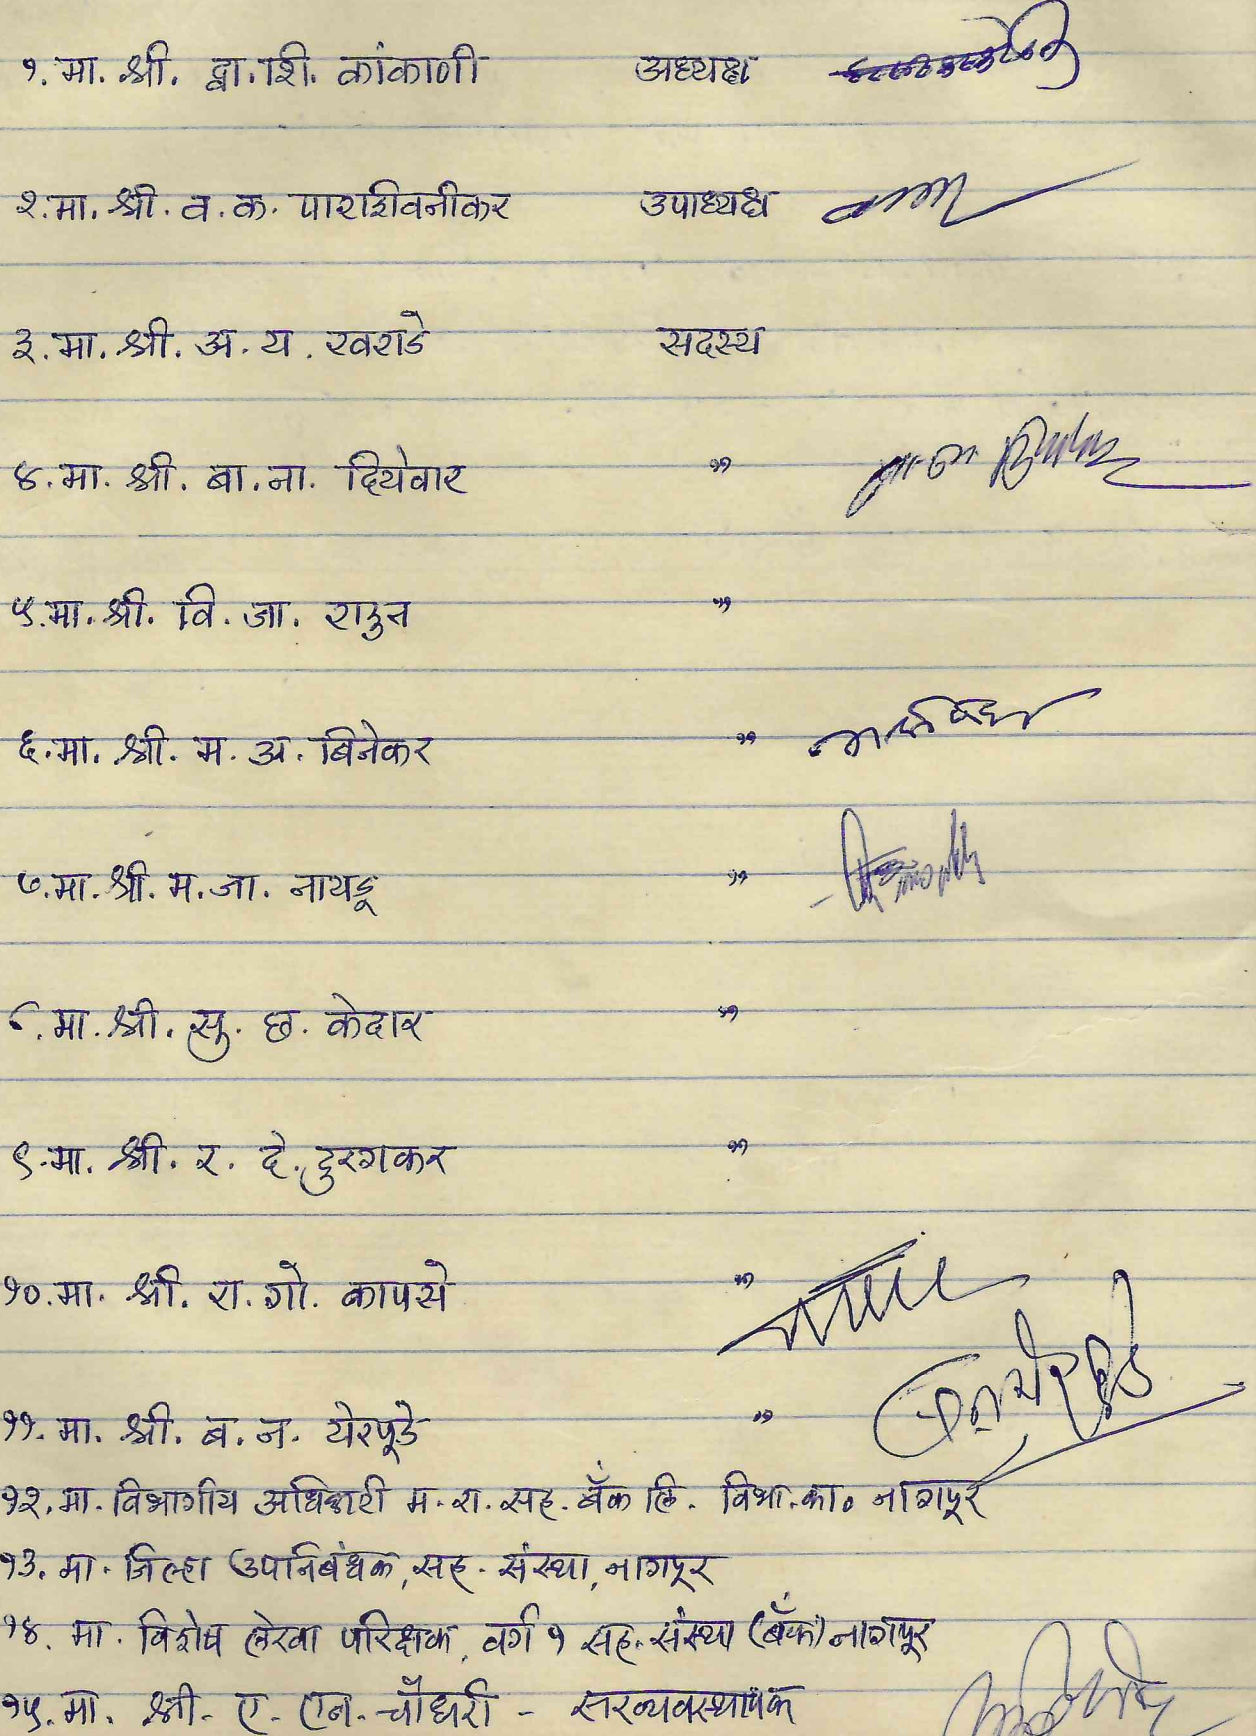 १. मा. श्री. द्वा. शि. कांकाणी अध्यक्ष
२. मा. श्री. व. क. पाराशीवनीकर उपाध्यक्ष
३. मा. श्री. अ. य. खराडे सदस्य
४. मा. श्री. बा. ना. दियेवार "
५. मा. श्री. वि. जा. राउत "
६. मा. श्री. म. अ. बिनेकर "
७. मा. श्री. म. जा. नायडू "
८. मा. श्री. सु. छ. केदार "
९. मा. श्री. र. दे. दुरगकर "
१०. मा. श्री. रा. गो. कापसे "
११. मा. श्री. ब. न. येरपूडे "
१२. मा. विभागीय अधिकारी म. रा. सह. बँक लि. विभा. का० नागपूर
१३. मा. जिल्हा उपनिबंधक, सह. संस्था, नागपूर
१४. मा. विशेष लेखा परिक्षक, वर्ग १ सह. संस्था (बँक) नागपूर
१५. मा. श्री. ए. एन. चौधरी - सरव्यवस्थापक